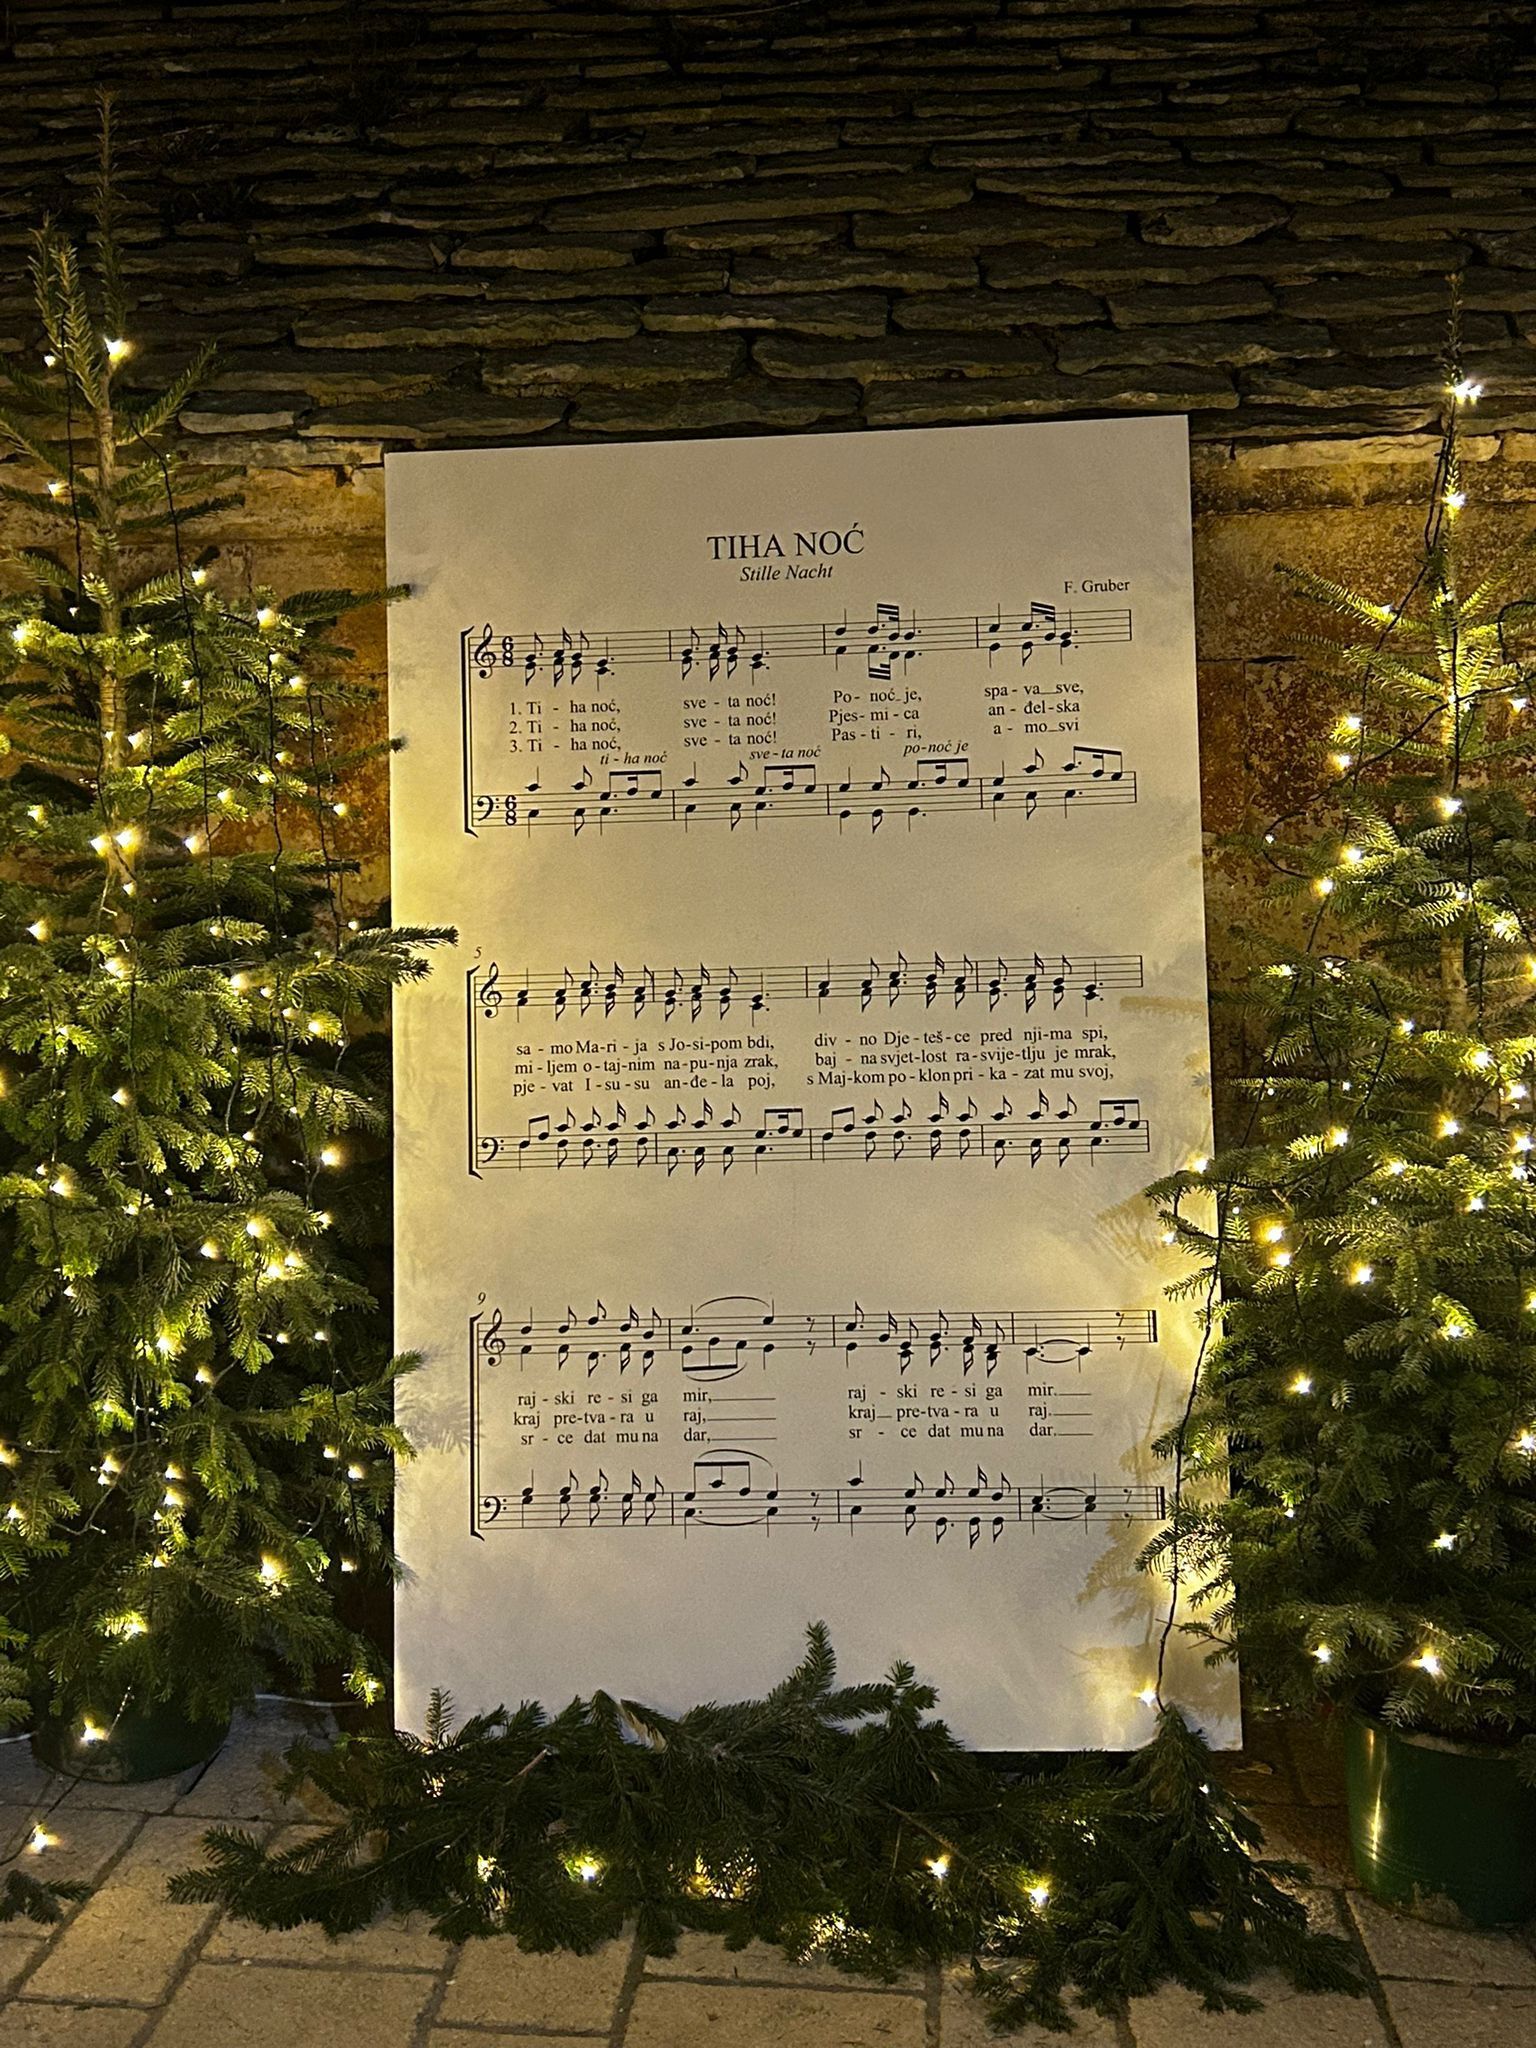 TIHA NOĆ
Stille Nacht
F. Gruber
6
8
1. Ti - ha noć, sve - ta noć! Po - noć je, spa - va sve,
2. Ti - ha noć, sve - ta noć! Pjes - mi - ca an - đel - ska
3. Ti - ha noć, sve - ta noć! Pas - ti - ri, a - mo svi
ti - ha noć sve - ta noć po - noć je
6
8
5
sa - mo Ma - ri - ja s Jo - si - pom bdi, div - no Dje - teš - ce pred nji - ma spi,
mi - ljem o - taj - nim na - pu - nja zrak, baj - na svjet - lost ra - svije - tlju je mrak,
pje - vat I - su - su an - đe - la poj, s Maj - kom po - klon pri - ka - zat mu svoj,
9
raj - ski re - si ga mir, raj - ski re - si ga mir.
kraj pre - tva - ra u raj, kraj pre - tva - ra u raj.
sr - ce dat mu na dar, sr - ce dat mu na dar.